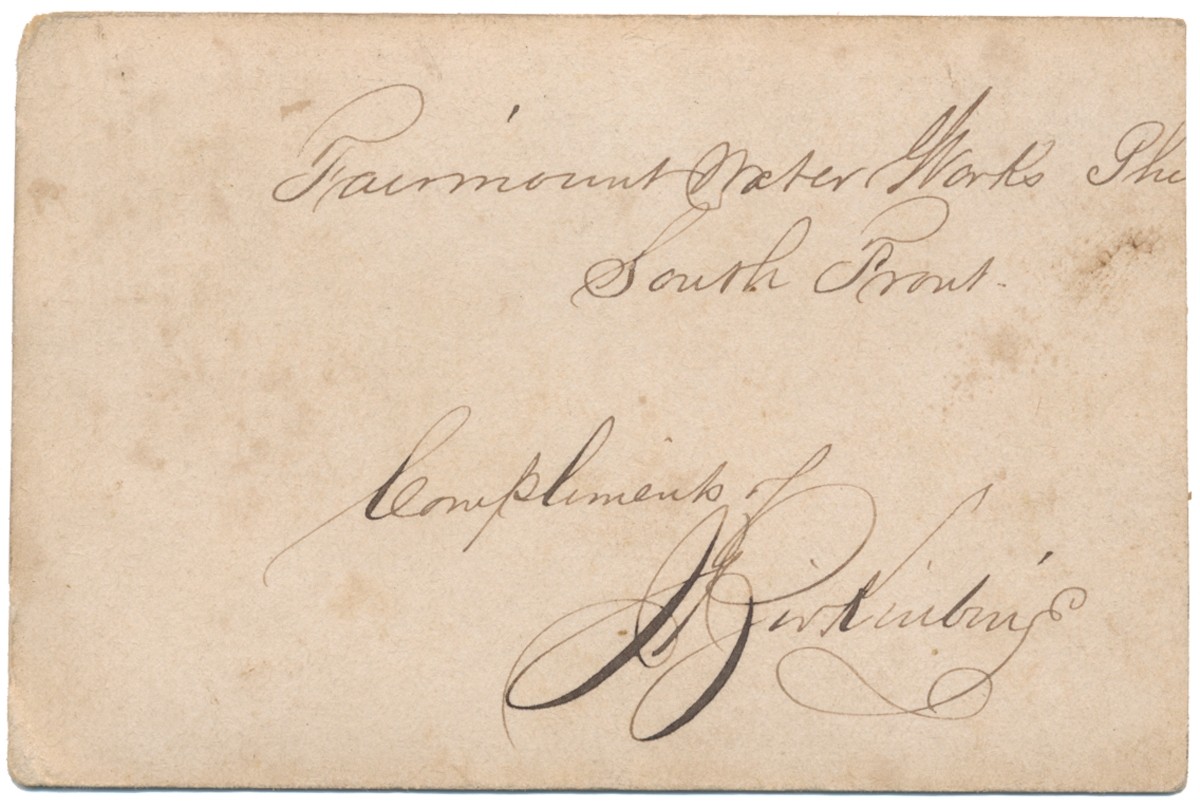 Fairmount Water Works Phi
South Front.
Compliments of
Birkinbine